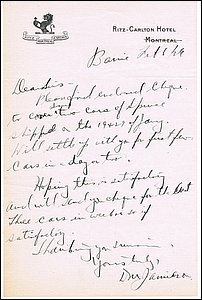 RITZ-CARLTON HOTEL
MONTREAL
Barrie Feb 1
Dear Sirs -
Please find enclosed cheque
to cover two cars of Spruce
shipped on the 19 & 27 of Jany.
Will settle up with you for first
cars in a day or two.
Hoping this is satisfactory
and will send you cheque for the next
three cars in week or so if
satisfactory.
Thanking you I remain,
Yours truly,
Jamieson